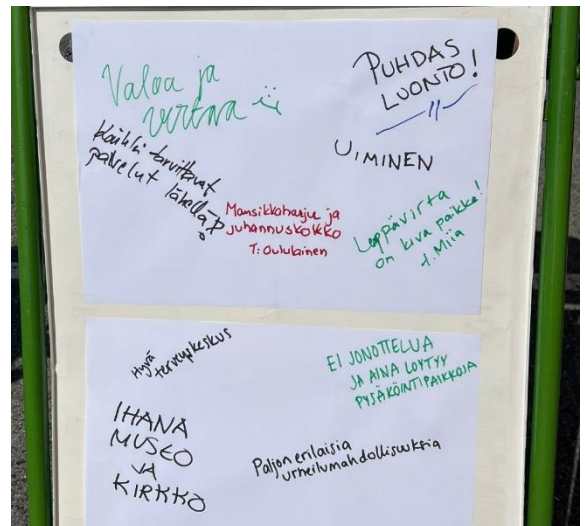 Valoa ja
virtaa :)
PUHDAS
LUONTO!
Kaikki tarvittavat
palvelut lähellä
UIMINEN
Mansikkaharju ja
juhannuskokko
T: Oululainen
Leppävirta
on kiva paikka!
t. Miia
Hyvä
terveyskeskus
EI JONOTTELUA
JA AINA LÖYTYY
PYSÄKÖINTIPAIKKOJA
IHANA
MUSEO
JA
KIRKKO
Paljon erilaisia
urheilumahdollisuuksia